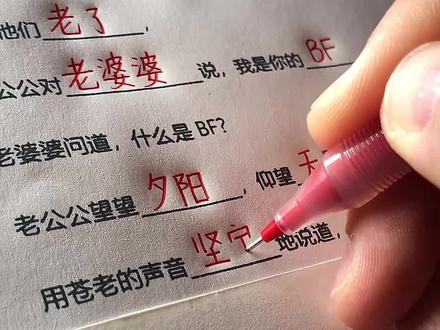 他们老了，
公公对老婆婆说，我是你的BF
老婆婆问道，什么是BF？
老公公望望夕阳，仰望天
用苍老的声音坚定地说道，